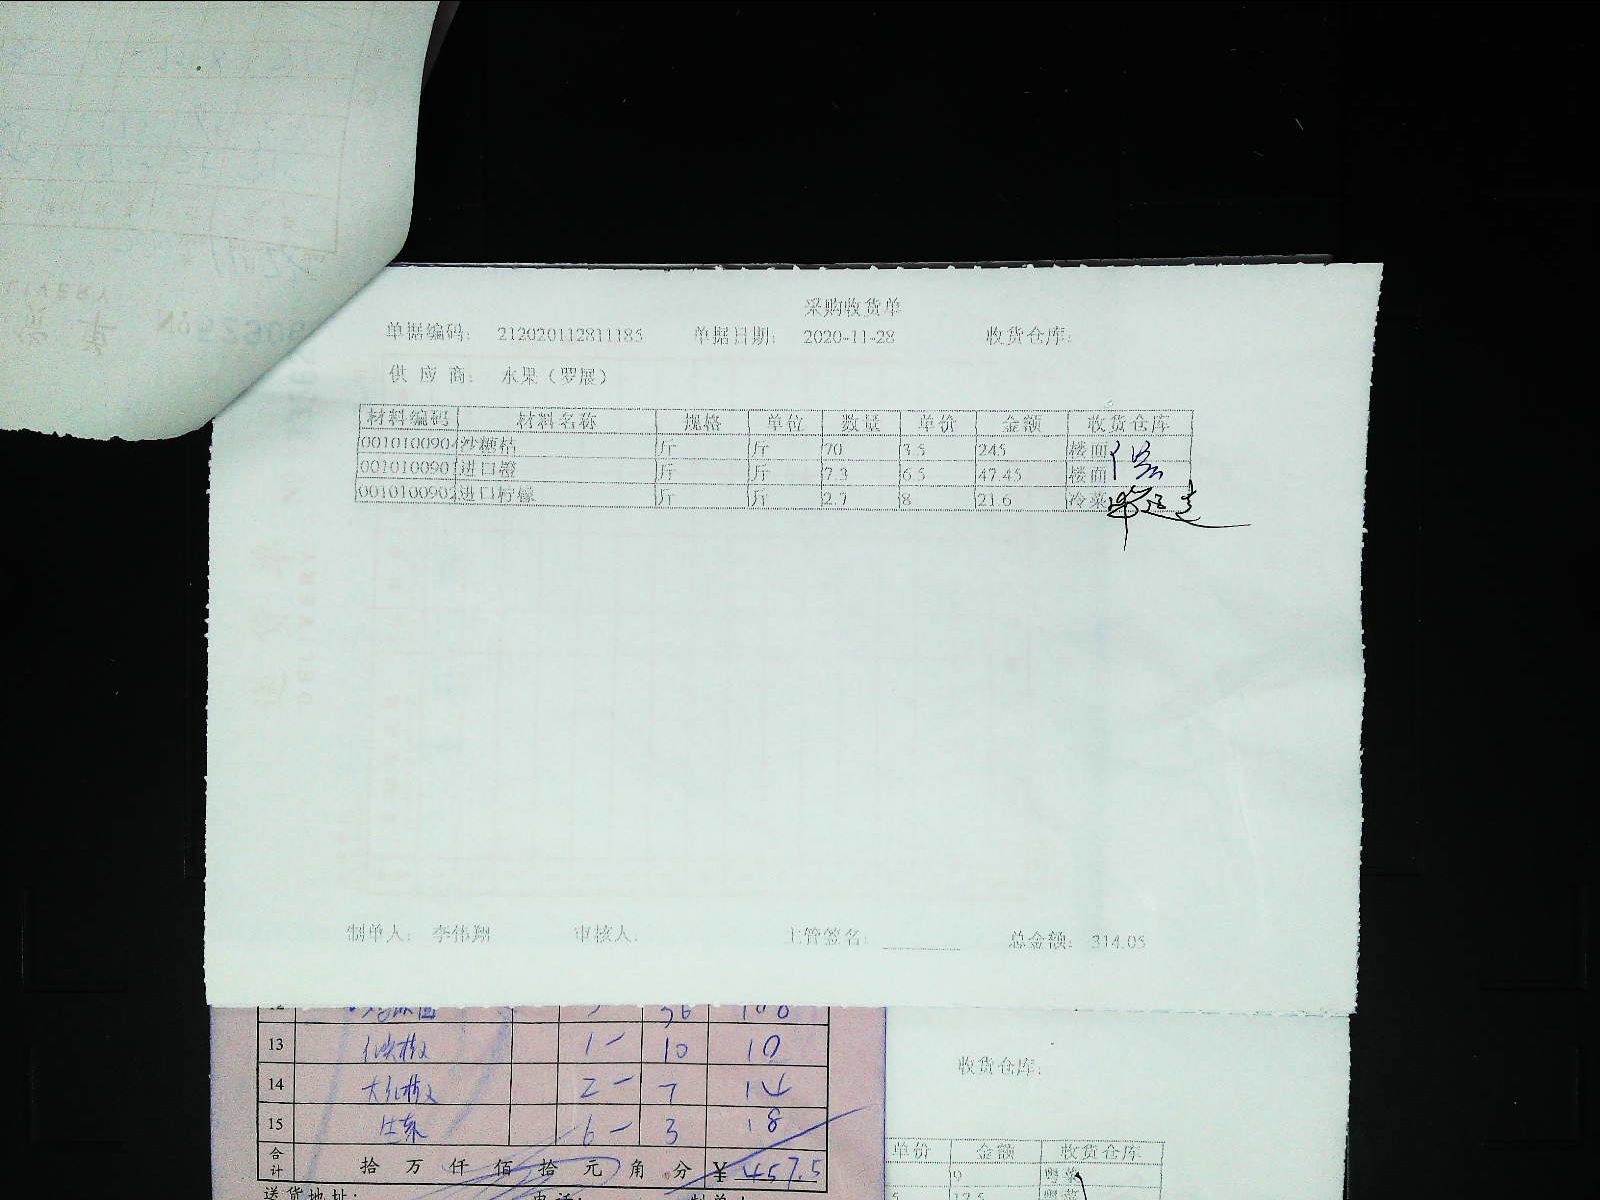 采购收货单
单据编码: 212020112811185 单据日期: 2020-11-28 收货仓库:
供 应 商: 水果（罗展）
材料编码 材料名称 规格 单位 数量 单价 金额 收货仓库
0010100904 沙糖桔 斤 斤 70 3.5 245 楼面
001010090 进口橙 斤 斤 7.3 6.5 47.45 楼面
0010100902 进口柠檬 斤 斤 2.7 8 21.6 冷菜
制单人: 李伟翔 审核人: 主管签名: 总金额: 314.05
12 36 108
13 1- 10 10
14 大红椒 2- 7 14
15 生菜 6- 3 18
合计 拾 万 仟 佰 拾 元 角 分 ¥ 457.5
送货地址:
收货仓库:
单价 金额 收货仓库
9 粤菜
5 17.5 粤菜